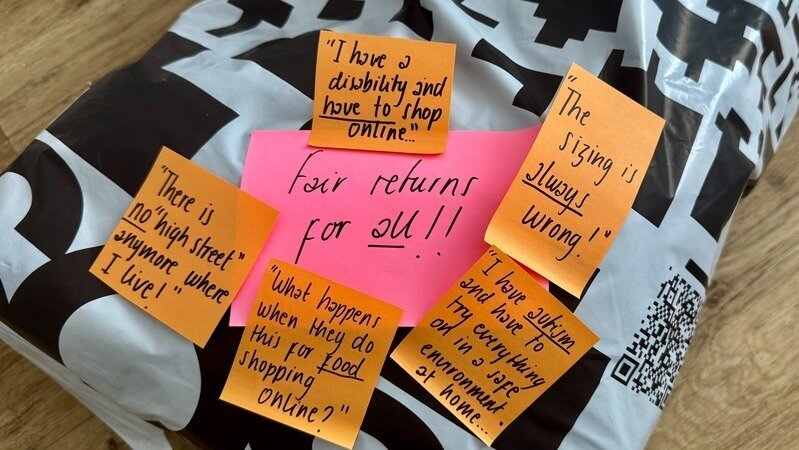 "I have a
disability and
have to shop
online..."
"The
sizing is
always
wrong!"
Fair returns
for all!!
"There is
no "high street"
anymore where
I live!"
"What happens
when they do
this for food
shopping
online?"
"I have autism
and have to
try everything
on in a safe
environment
at home...